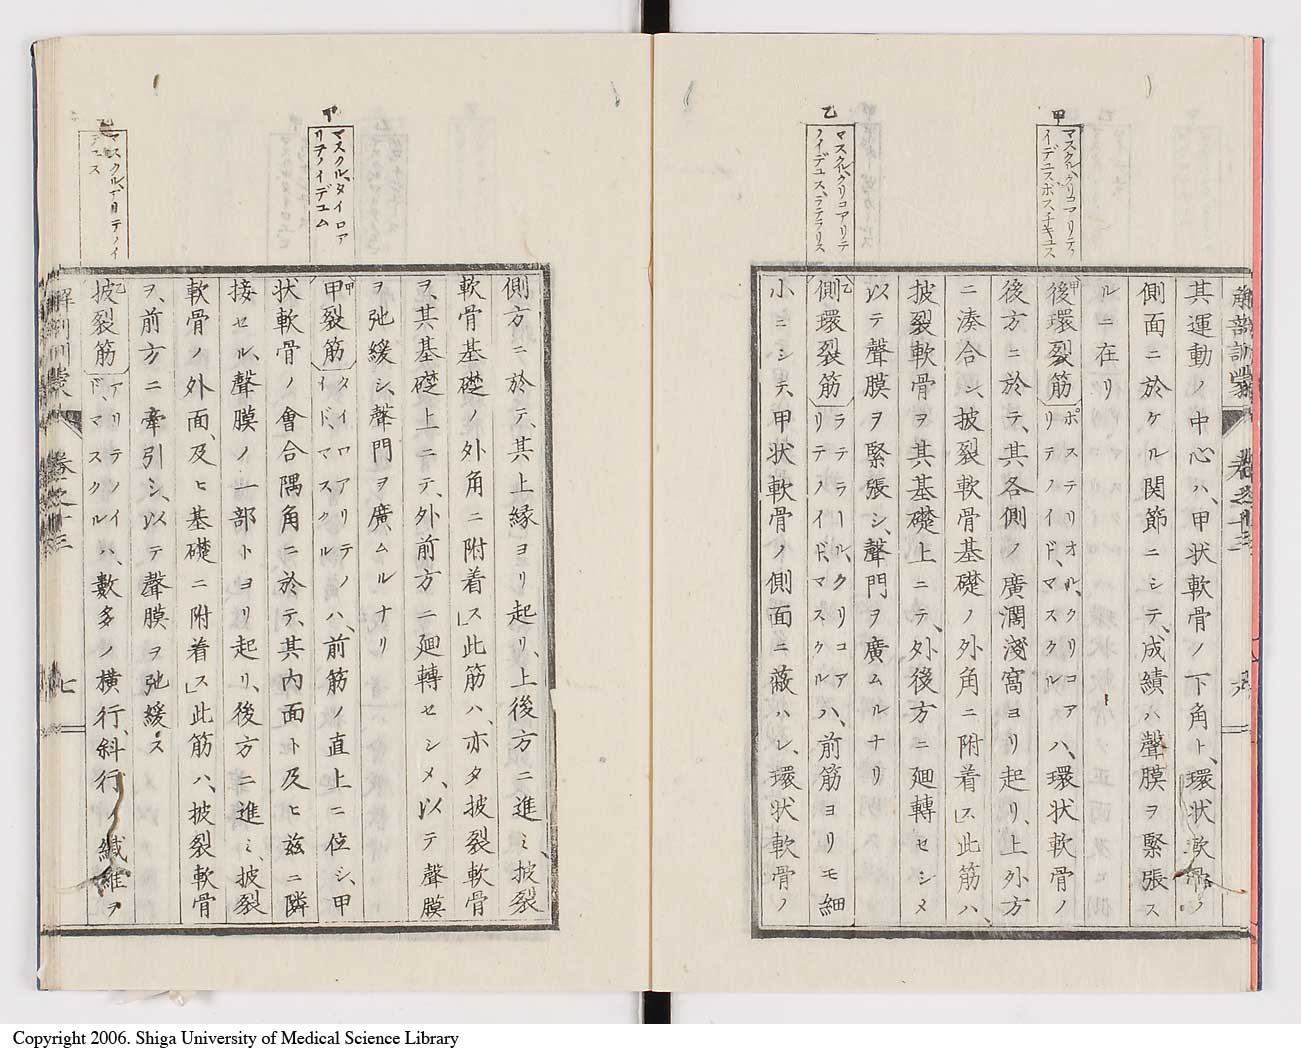 甲
マスクル、クリコアリティ
イデユスポスチキュス
乙
マスクル、クリコアリテ
ノイデユス、ラテラリス
巻之十三
其運動ノ中心ハ、甲状軟骨ノ下角ト、環状軟骨ノ
側面ニ於ケル関節ニシテ、成績ハ聲膜ヲ緊張ス
ルニ在リ
甲後環裂筋 ポステリオル、クリコア
リテノイド、マスクル ハ、環状軟骨ノ
後方ニ於テ、其各側ノ廣濶淺窩ヨリ起リ、上外方
ニ湊合シ、披裂軟骨基礎ノ外角ニ附着ス」此筋ハ、
披裂軟骨ヲ其基礎上ニテ、外後方ニ廻轉セシメ
以テ聲膜ヲ緊張シ、聲門ヲ廣ムルナリ
乙側環裂筋 ラテラール、クリコア
リテノイド、マスクル ハ、前筋ヨリモ細
小ニシテ、甲状軟骨ノ側面ニ蔽ハレ、環状軟骨ノ
甲
マスクル、タイロア
リテノイデユム
乙
マスクル、アリテノイ
デユス
側方ニ於テ、其上縁ヨリ起リ、上後方ニ進ミ、披裂
軟骨基礎ノ外角ニ附着ス」此筋ハ、亦タ披裂軟骨
ヲ、其基礎上ニテ、外前方ニ廻轉セシメ、以テ聲膜
ヲ弛緩シ、聲門ヲ廣ムルナリ
甲甲裂筋 タイロアリテノ
イド、マスクル ハ、前筋ノ直上ニ位シ、甲
状軟骨ノ會合隅角ニ於テ、其内面ト及ヒ茲ニ隣
接セル、聲膜ノ一部トヨリ起リ、後方ニ進ミ、披裂
軟骨ノ外面、及ヒ基礎ニ附着ス」此筋ハ、披裂軟骨
ヲ、前方ニ牽引シ、以テ聲膜ヲ弛緩ス
乙披裂筋 アリテノイ
ド、マスクル ハ、數多ノ横行、斜行ノ纖維ヲ
巻之十三
七
Copyright 2006. Shiga University of Medical Science Library